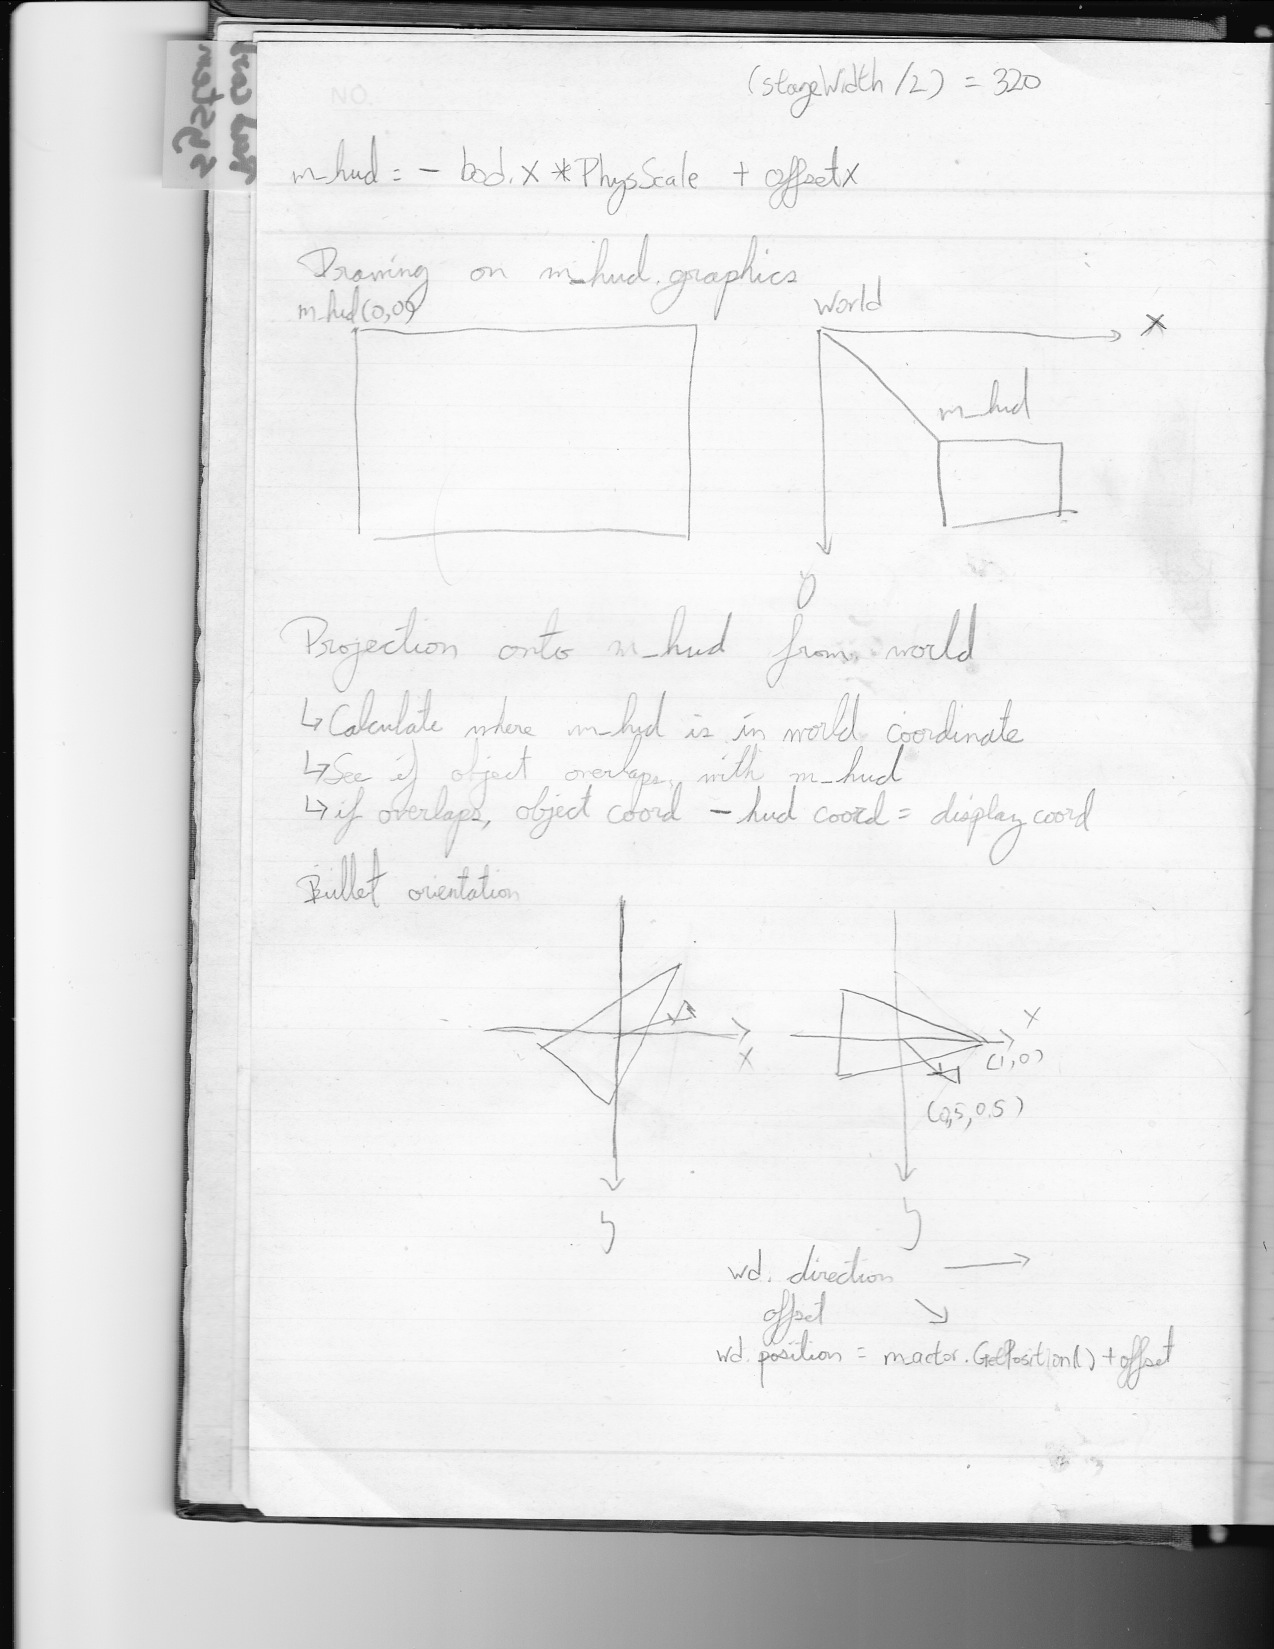 (stageWidth /2) = 320
m_hud = - bod.x * PhysScale + offsetx
Drawing on m_hud.graphics
m_hud(0,0)
World
x
m_hud
y
Projection onto m_hud from world
↳ Calculate where m_hud is in world coordinate
↳ See if object overlaps with m_hud
↳ if overlaps, object coord - hud coord = display coord
Bullet orientation
x
x
(1,0)
(0,5,0.5)
y
y
wd. direction
offset
wd. position = mactor.GetPosition() + offset
System
NO.